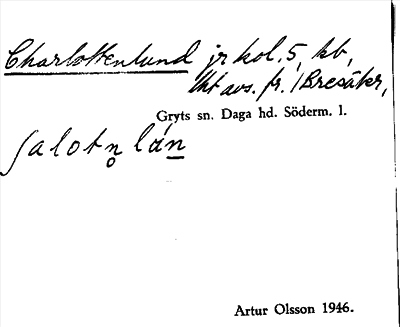 Charlottenlund jr kol. 5, kb,
Uht avs. fr. 1/Bresäter,
Gryts sn. Daga hd. Söderm. l.
ʃalotn̥ lán
Artur Olsson 1946.